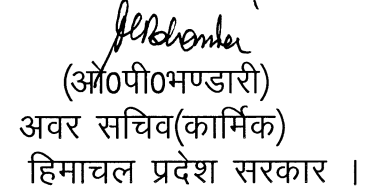 (ओ0पी0भण्डारी)
अवर सचिव(कार्मिक)
हिमाचल प्रदेश सरकार ।